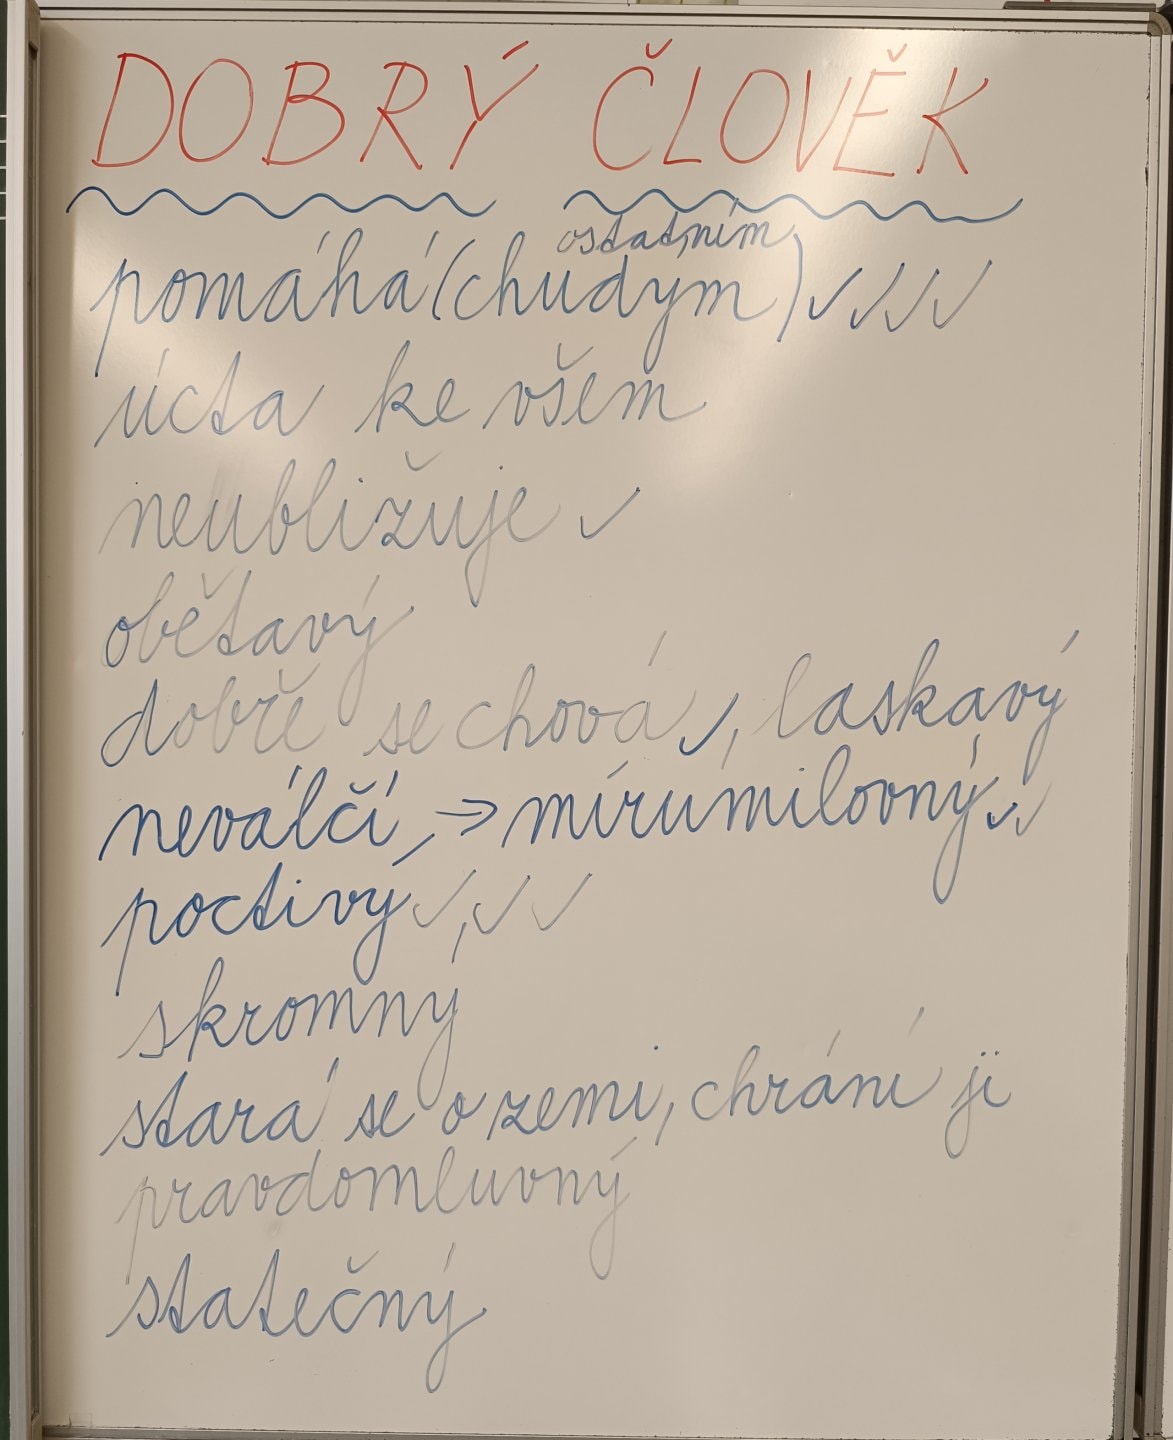 DOBRÝ ČLOVĚK
ostatním
pomáhá (chudým) ✓✓✓✓
úcta ke všem
neubližuje ✓
obětavý
dobře se chová ✓, laskavý
neválčí, → mírumilovný ✓✓
poctivý ✓, ✓ ✓
skromný
stará se o zemi, chrání ji
pravdomluvný
statečný